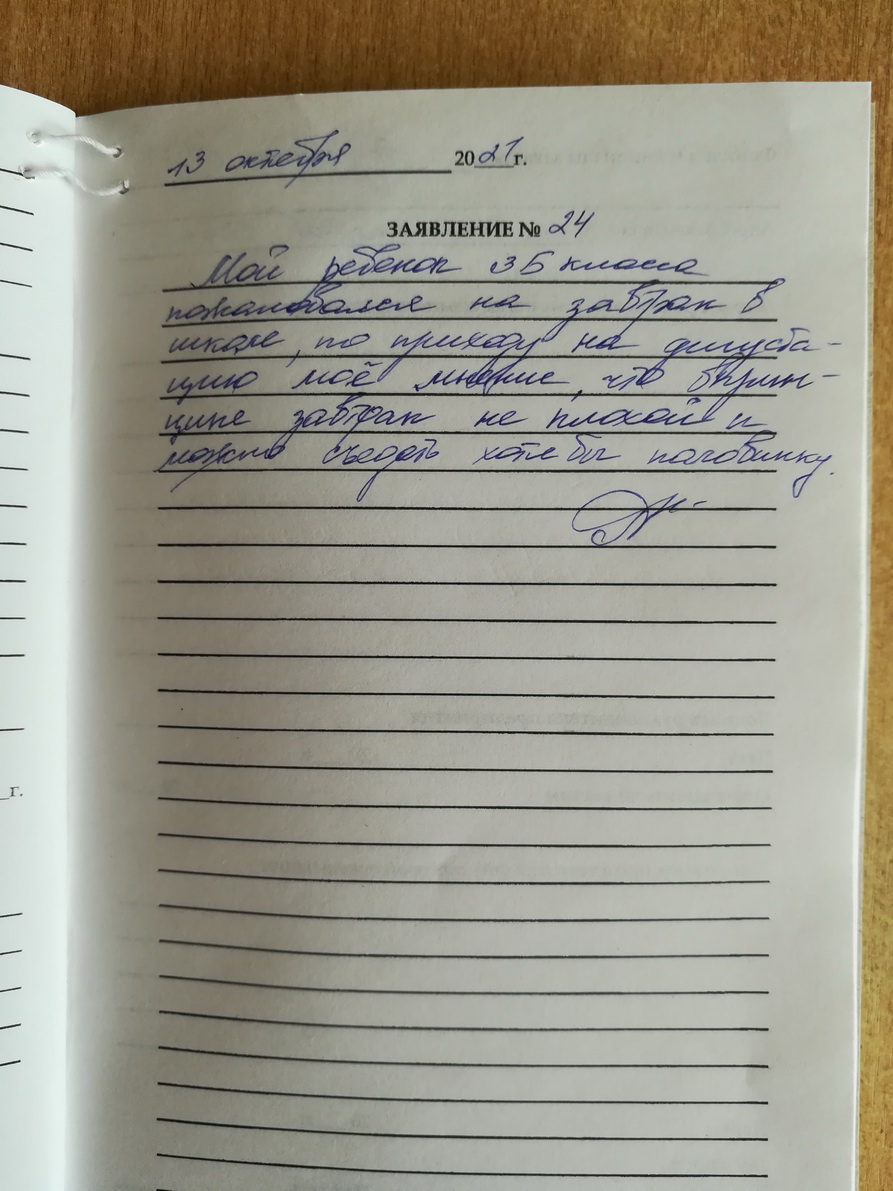 13 октября 2021 г.
ЗАЯВЛЕНИЕ № 24
Мой ребенок 3Б класса
пожаловался на завтрак в
школе, по приходу на дигуста-
цию моё мнение, что вприн-
ципе завтрак не плохой и
можно съедать хотя бы половинку.
г.